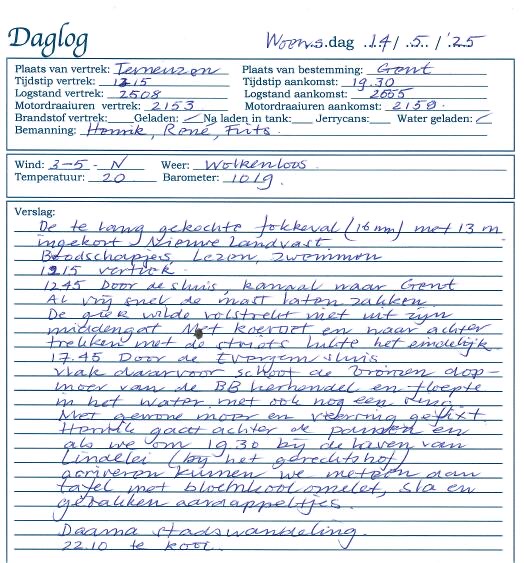 Daglog Woensdag 14/5/'25
Plaats van vertrek: Terneuzen Plaats van bestemming: Gent
Tijdstip vertrek: 1215 Tijdstip aankomst: 19.30
Logstand vertrek: 2508 Logstand aankomst: 2555
Motordraaiuren vertrek: 2153 Motordraaiuren aankomst: 2159
Brandstof vertrek: Geladen: Na laden in tank: Jerrycans: Water geladen:
Bemanning: Henrik, René, Frits
Wind: 3-5 - N Weer: Wolkenloos
Temperatuur: 20 Barometer: 1019
Verslag:
De te lang gekochte fokkeval (16 mm) met 13 m
ingekort Nieuwe Landvast
Boodschapjes, Lezen, zwemmen
1215 vertrek
1245 Door de sluis, kanaal naar Gent
Al vrij snel de mast laten zakken.
De giek wilde volstrekt niet uit zijn
middengat Met koevoet en naar achter
trekken met de schoots lukte het eindelijk
17.45 Door de Evergemsluis
vlak daarvoor schoot de bronzen dop-
moer van de BB hefhendel en floepte
in het water met ook nog een ring
Met gewone moer en veerring gefixt
Henrik gaat achter de pannen en
als we om 19.30 bij de haven van
Lindelei (bij het gerechtshof)
arriveren kunnen we meteen aan
tafel met bloemkool omelet, sla en
gebakken aardappeltjes.
Daarna stadswandeling.
22.10 te kooi.